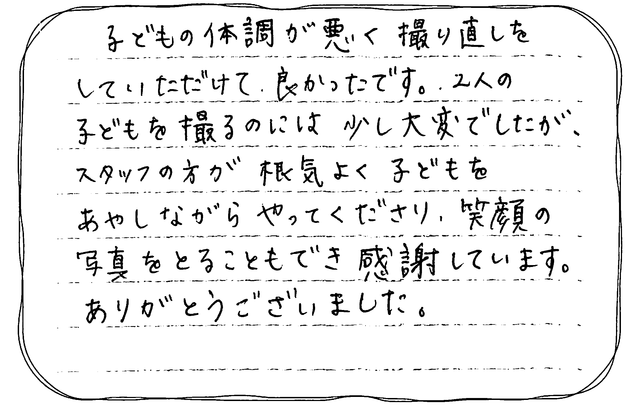 子どもの体調が悪く撮り直しを
していただけて、良かったです。2人の
子どもを撮るのには少し大変でしたが、
スタッフの方が根気よく子どもを
あやしながらやってくださり、笑顔の
写真をとることもでき感謝しています。
ありがとうございました。